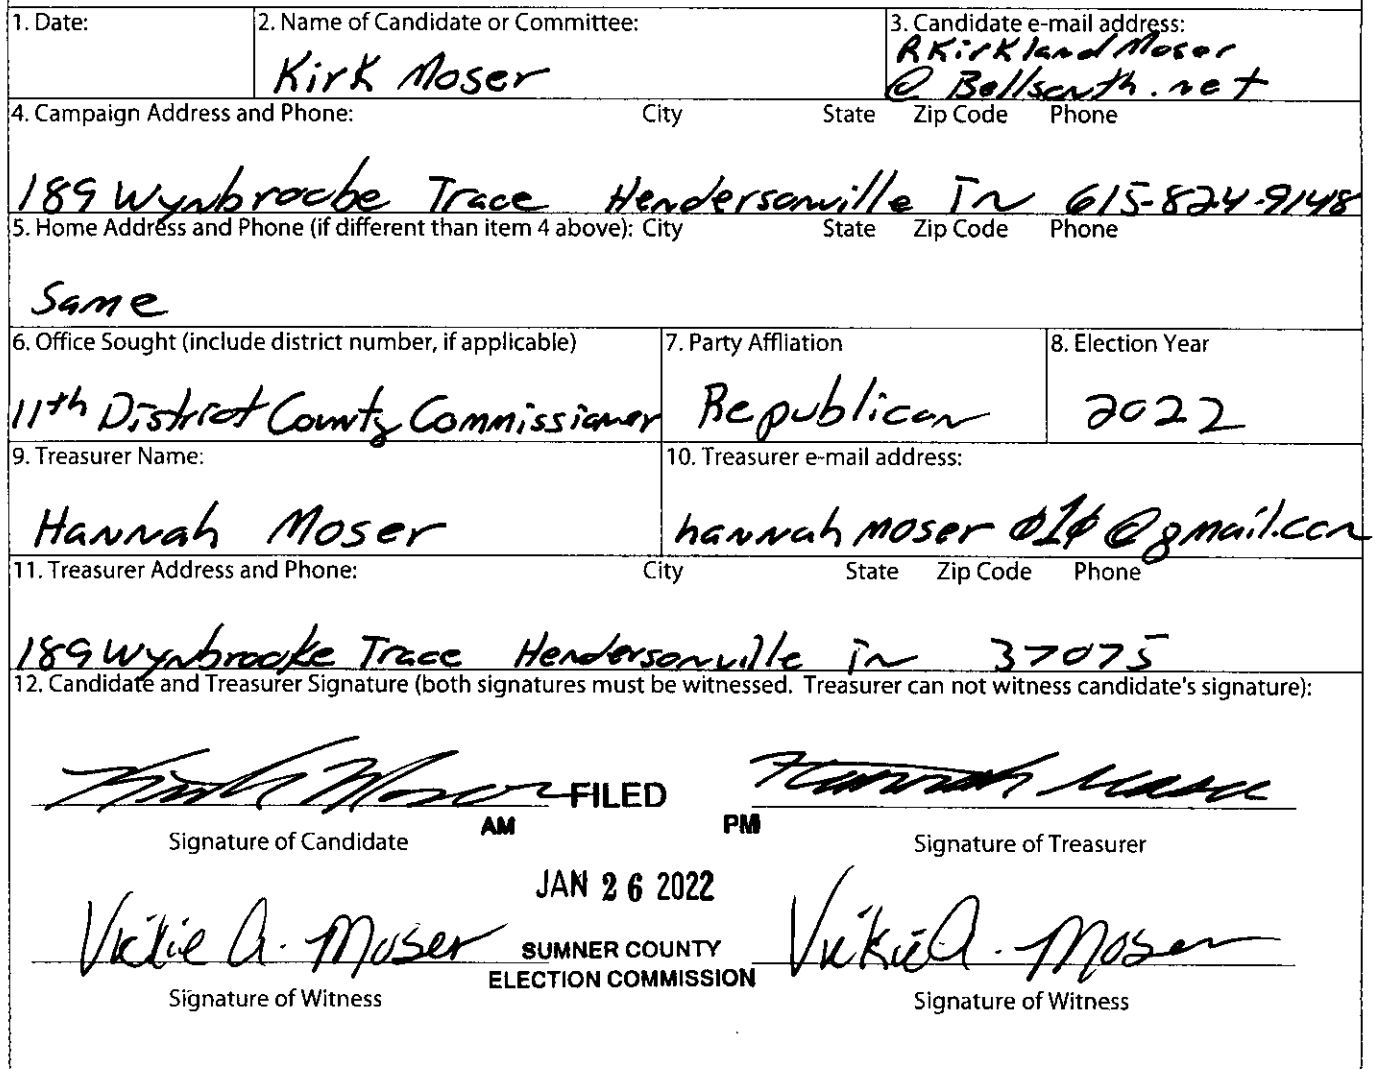 1. Date:
2. Name of Candidate or Committee:
Kirk Moser
3. Candidate e-mail address:
RKirklandMoser
@ Bellsouth.net
4. Campaign Address and Phone: City State Zip Code Phone
189 Wynbrooke Trace Hendersonville Tn 615-824-9148
5. Home Address and Phone (if different than item 4 above): City State Zip Code Phone
Same
6. Office Sought (include district number, if applicable)
11th District County Commissioner
7. Party Affliation
Republican
8. Election Year
2022
9. Treasurer Name:
Hannah Moser
10. Treasurer e-mail address:
hannahmoser010@gmail.com
11. Treasurer Address and Phone: City State Zip Code Phone
189 Wynbrooke Trace Hendersonville Tn 37075
12. Candidate and Treasurer Signature (both signatures must be witnessed. Treasurer can not witness candidate's signature):
Kirk Moser FILED Hannah Moser
AM PM
Signature of Candidate Signature of Treasurer
JAN 26 2022
Vickie A. Moser SUMNER COUNTY Vickie A. Moser
ELECTION COMMISSION
Signature of Witness Signature of Witness